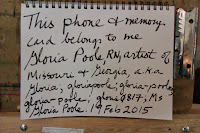 This phone & memory-
card belongs to me
Gloria Poole, RN, artist of
Missouri & Georgia, a.k.a
Gloria; gloriapoole; gloria-poole;
gloria.poole; gloria0817; Ms
Gloria Poole. 19 Feb 2015